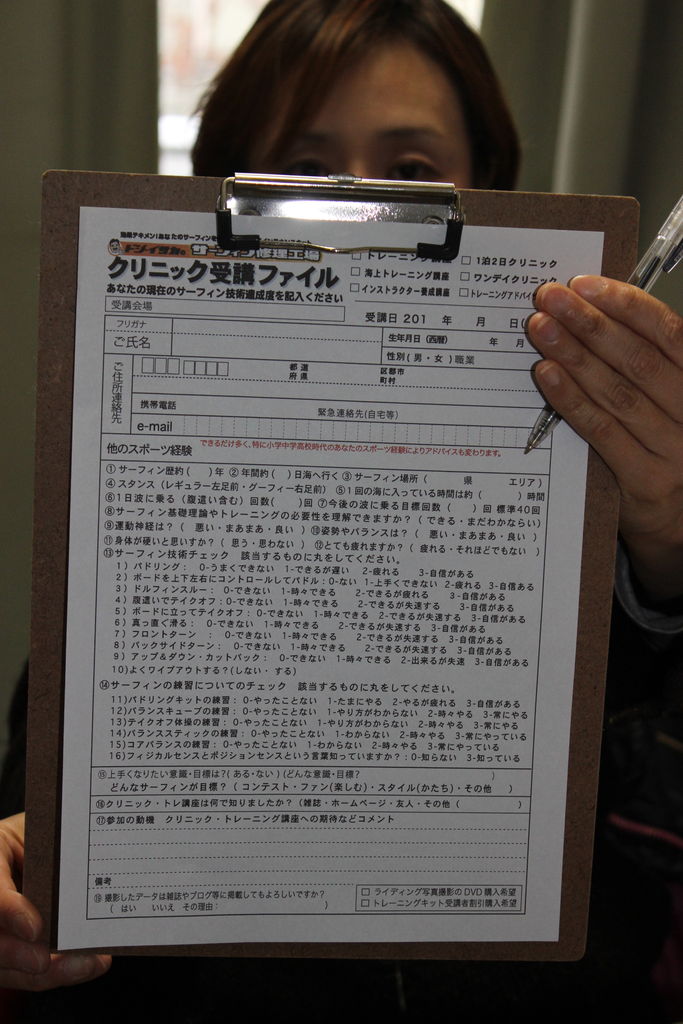 効果テキメン!あなたのサーフィンを
ドン・イシカの サーフィン修理工場
クリニック受講ファイル
あなたの現在のサーフィン技術達成度を記入ください
□ トレーニング講座 □ 1泊2日クリニック
□ 海上トレーニング講座 □ ワンデイクリニック
□ インストラクター養成講座 □ トレーニングアドバイ
受講会場
受講日 201 年 月 日(
フリガナ
ご氏名
生年月日(西暦) 年 月
性別(男・女)職業
ご住所連絡先
都道府県
区郡市町村
携帯電話 緊急連絡先(自宅等)
e-mail
他のスポーツ経験 できるだけ多く、特に小学中学高校時代のあなたのスポーツ経験によりアドバイスも変わります。
①サーフィン歴約( )年 ②年間約( )日海へ行く ③サーフィン場所( 県 エリア)
④スタンス(レギュラー左足前・グーフィー右足前) ⑤1回の海に入っている時間は約( )時間
⑥1日波に乗る(腹這い含む)回数( )回 ⑦今後の波に乗る目標回数( )回 標準40回
⑧サーフィン基礎理論やトレーニングの必要性を理解できますか?(できる・まだわからない)
⑨運動神経は?( 悪い・まあまあ・良い ) ⑩姿勢やバランスは?( 悪い・まあまあ・良い )
⑪身体が硬いと思いすか?( 思う・思わない ) ⑫とても疲れますか?( 疲れる・それほどでもない )
⑬サーフィン技術チェック 該当するものに丸をしてください。
1)パドリング: 0-うまくできない 1-できるが遅い 2-疲れる 3-自信がある
2)ボードを上下左右にコントロールしてパドル:0-ない 1-上手くできない 2-疲れる 3-自信ある
3)ドルフィンスルー: 0-できない 1-時々できる 2-できるが疲れる 3-自信がある
4)腹這いでテイクオフ:0-できない 1-時々できる 2-できるが失速する 3-自信がある
5)ボードに立ってテイクオフ:0-できない 1-時々できる 2-できるが失速する 3-自信がある
6)真っ直ぐ滑る: 0-できない 1-時々できる 2-できるが失速する 3-自信がある
7)フロントターン : 0-できない 1-時々できる 2-できるが失速する 3-自信がある
8)バックサイドターン: 0-できない 1-時々できる 2-できるが失速する 3-自信がある
9)アップ&ダウン・カットバック: 0-できない 1-時々できる 2-出来るが失速 3-自信がある
10)よくワイプアウトする?(しない・する)
⑭サーフィンの練習についてのチェック 該当するものに丸をしてください。
11)パドリングキットの練習:0-やったことない 1-たまにやる 2-やるが疲れる 3-自信がある
12)バランスキューブの練習:0-やったことない 1-やり方がわからない 2-時々やる 3-常にやる
13)テイクオフ体操の練習:0-やったことない 1-やり方がわからない 2-時々やる 3-常にやる
14)バランススティックの練習:0-やったことない 1-わからない 2-時々やる 3-常にやっている
15)コアバランスの練習:0-やったことない 1-わからない 2-時々やる 3-常にやっている
16)フィジカルセンスとポジションセンスという言葉知っていますか?:0-知らない 3-知っている
⑮上手くなりたい意識・目標は?(ある・ない)(どんな意識・目標? )
どんなサーフィンが目標?( コンテスト・ファン(楽しむ)・スタイル(かたち)・その他 )
⑯クリニック・トレ講座は何で知りましたか?(雑誌・ホームページ・友人・その他( )
⑰参加の動機 クリニック・トレーニング講座への期待などコメント
備考
⑱撮影したデータは雑誌やブログ等に掲載してもよろしいですか?
( はい いいえ その理由: )
□ ライディング写真撮影のDVD購入希望
□ トレーニングキット受講者割引購入希望